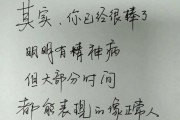 其实,你已经很棒了
明明有精神病
但大部分时间
都能表现的像正常人